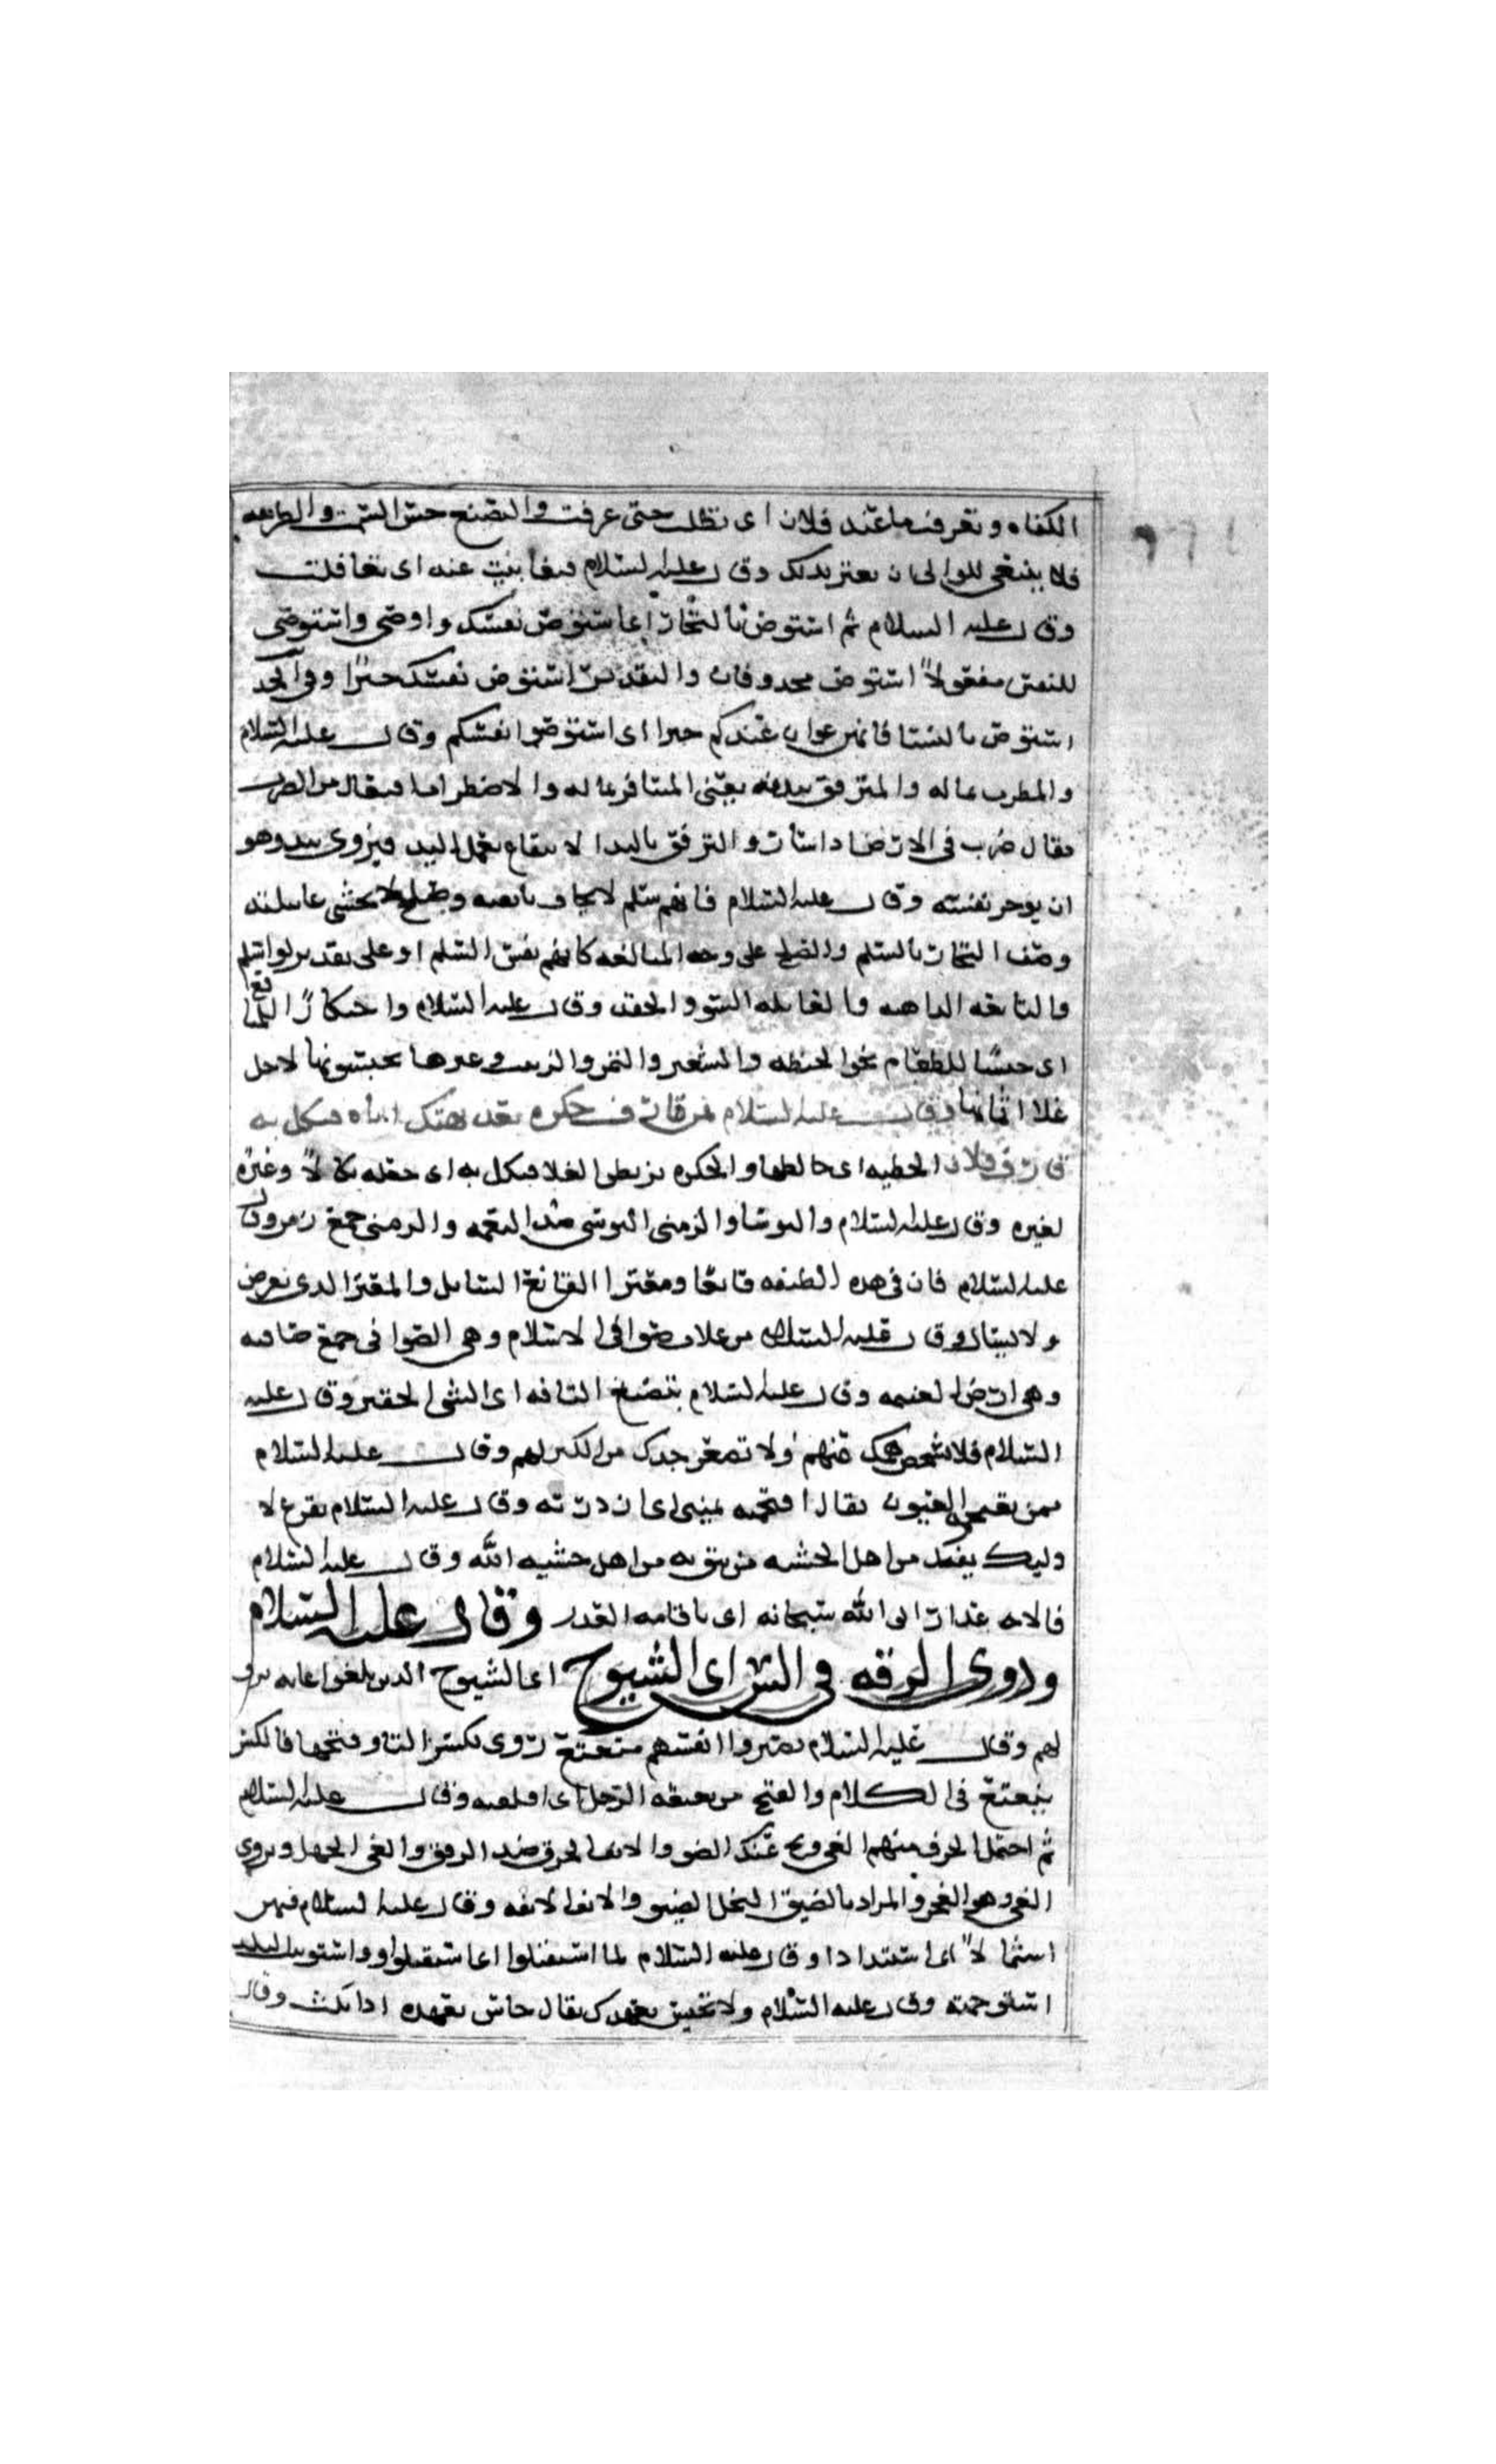 الكفاه وتعرفت ما عند فلان اى تطلبت حتى عرفت والتصنع حسن السمت والطريقه
فلا ينبغى للوالى ان يغتر بذلك وقال عليه السلام فتغابيت عنه اى تغافلت
وقال عليه السلام ثم استوص بالتجار اى استوص نفسك واوصى واستوصى
للنفس مفعولا استوص محذوفان والتقدير استوص نفسك خيرا وفى
استوص بالنسا فانهن عوان عندكم خيرا اى استوصوا انفسكم وقال عليه السلام
والمضطرب بماله والمترفق ببدنه يعنى المسافر بماله والاضطراب
يقال ضرب فى الارض اذا سار والترفق باليد الانتفاع بعمل اليد ويروى بيديه وهو
ان يوجر نفسه وقال عليه السلام فانهم سلم لا يخاف بايقته وصلح لا يخشى غايلته
وصف التجار بالسلم والصلح على وجه المبالغه كانهم نفس السلم او على تقدير ذوا سلم
والبايقه الداهيه والغايله السو والحقد وقال عليه السلام واحتكارا للمنافع
اى حبسا للطعام نحو الحنطه والشعير والتمر والزبيب وغيرها يحبسونها لاجل
غلا اثمانها وقال عليه السلام فمن قارف حكره بعد نهيك اياه فنكل به
قارف فلان الخطيه اى خالطها والحكره تربص الغلا فنكل به اى جعله نكالا وعبره
لغيره وقال عليه السلام والبوسا والزمنى البوسى ضد النعمه والزمنى جمع زمن وقال
عليه السلام فان فى هذه الطبقه قانعا ومعترا القانع السايل والمعتر الذى يتعرض
ولا يسال وقال عليه السلام من غلات صوافى الاسلام وهى الصوافى جمع صافيه
وهى ارض الغنيمه وقال عليه السلام بتضييع التافه اى الشى الحقير وقال عليه
السلام فلا تشخص همك عنهم ولا تصعر خدك من الكبر لهم وقال عليه السلام
ممن تقتحمه العيون يقال اقتحمته عينى اى ازدرته وقال عليه السلام تفرغ لا
وليك يفعل من اهل الخشيه من تثق به من اهل خشيه الله وقال عليه السلام
فالاعذار الى الله سبحانه اى باقامه العذر وقال عليه السلام
وذوى الرقه فى السن اى الشيوخ اى الشيوخ الذين بلغوا غايه
لهم وقال عليه السلام فصبروا انفسهم متعتع روى بكسر التا وفتحها فالكسر
يتتعتع فى الكلام والفتح من تعتعه الرجل اى اقلقه وقال عليه السلام
ثم احتمل الخرق منهم والعى ونح عنك الضيق والانف الخرق ضد الرفق والعى الجهل ويروى
الغى وهو العجز والمراد بالضيق البخل الضيق والانف الانفه وقال عليه السلام فيهن
اى استبدادا وقال عليه السلام لما استقبلوا اى استقبلوا واستوبلت البلد
استوخمته وقال عليه السلام ولا تخيس بعهدك يقال خاس بعهده اذا نكث وقال